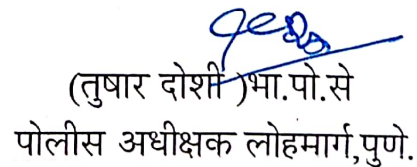 (तुषार दोशी )भा.पो.से
पोलीस अधीक्षक लोहमार्ग,पुणे.